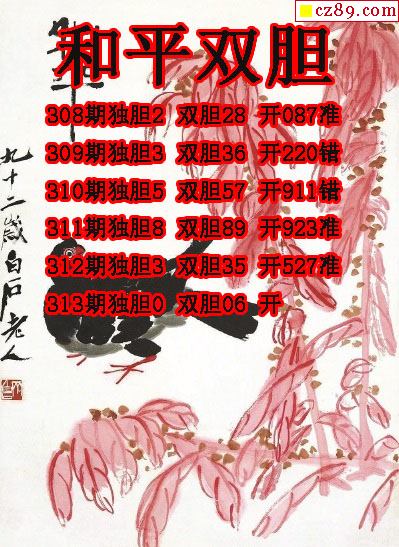 cz89.com
和平双胆
308期独胆2 双胆28 开087准
309期独胆3 双胆36 开220错
310期独胆5 双胆57 开911错
311期独胆8 双胆89 开923准
312期独胆3 双胆35 开527准
313期独胆0 双胆06 开
九十二岁白石老人